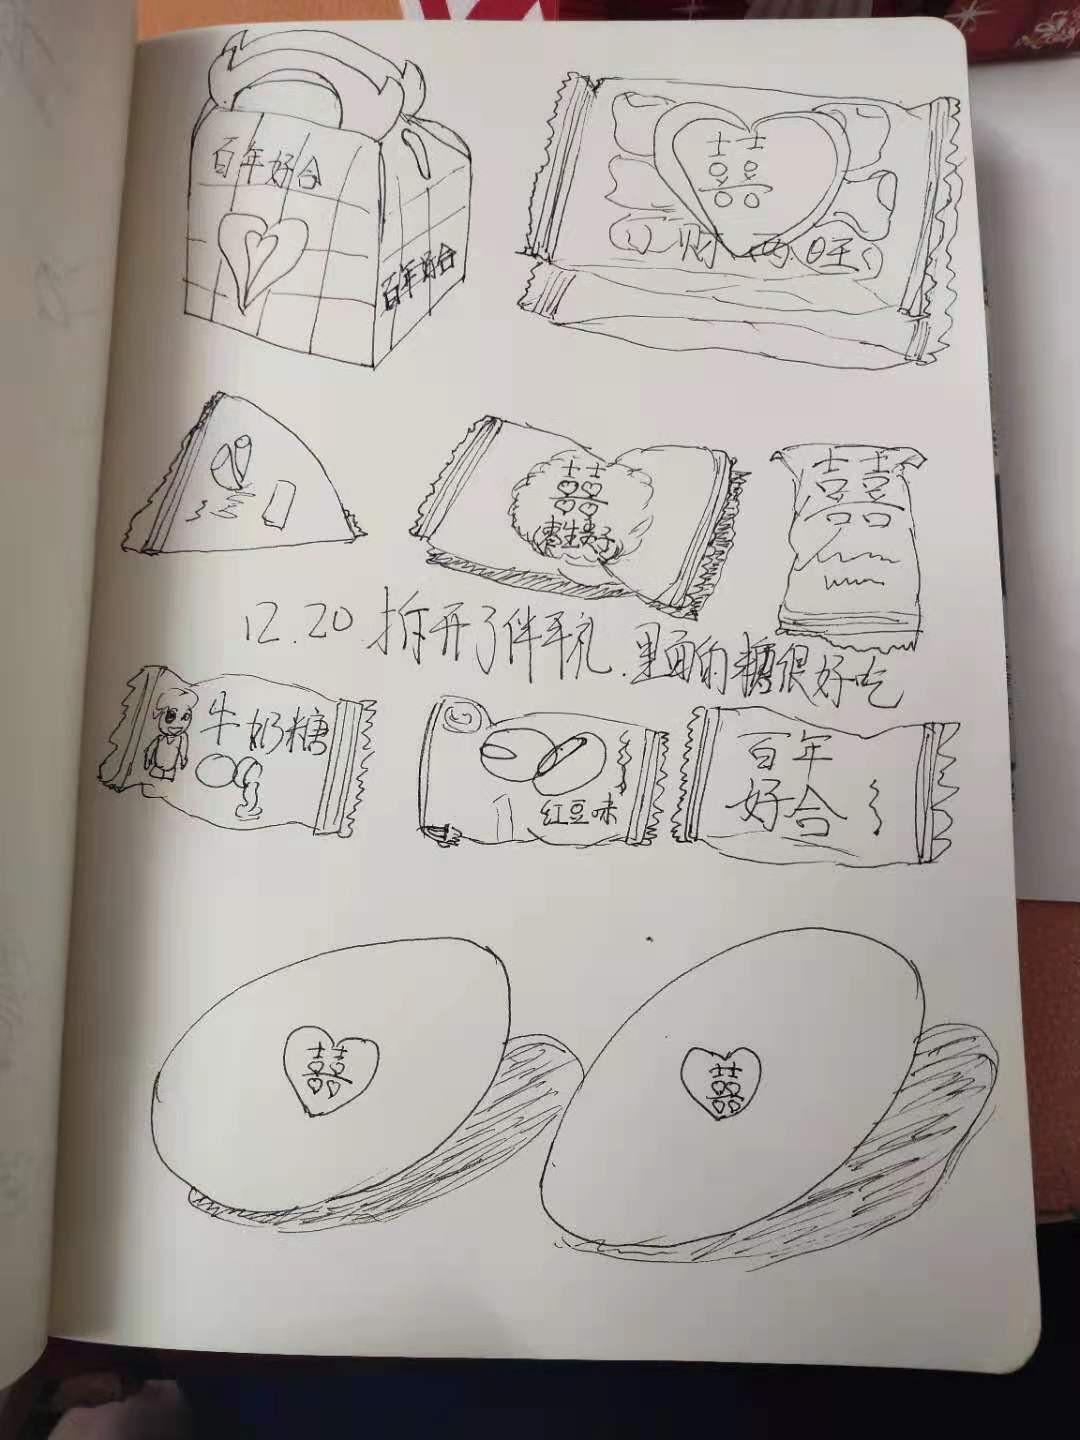 百年好合
百年好合
囍
财两旺
囍
枣生贵子
囍
12.20.拆开了伴手礼.里面的糖很好吃
牛奶糖
红豆味
百年
好合
囍
囍